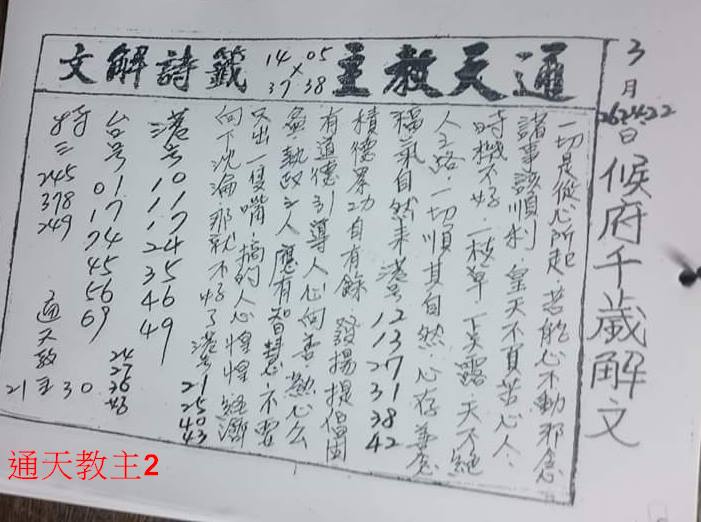 3月26.24.22日候府千歲解文
通天教主 05 38 × 14 37 籤詩解文
一切是從心所起．若能心不動邪念
諸事該順利．皇天不負苦心人、
時機不好．一枝草 一點露．天不絕
人之路．一切順其自然．心存善念
福氣自然來 港号 12 13 27 31 38 42
積德累功自有餘．發揚提倡固
有道德引導人心向善．熱心公
益 執政之人 應有智慧．不要
只出一隻嘴．搞的人心惶惶 經濟
向下沈淪．那就不好了 港号 21 25 40 43
港号 10 11 17 24 35 46 49
台号 01 17 74 45 56 69 24 27 36 48
特 8 三 245 378 249 通天教主 30 21
通天教主2